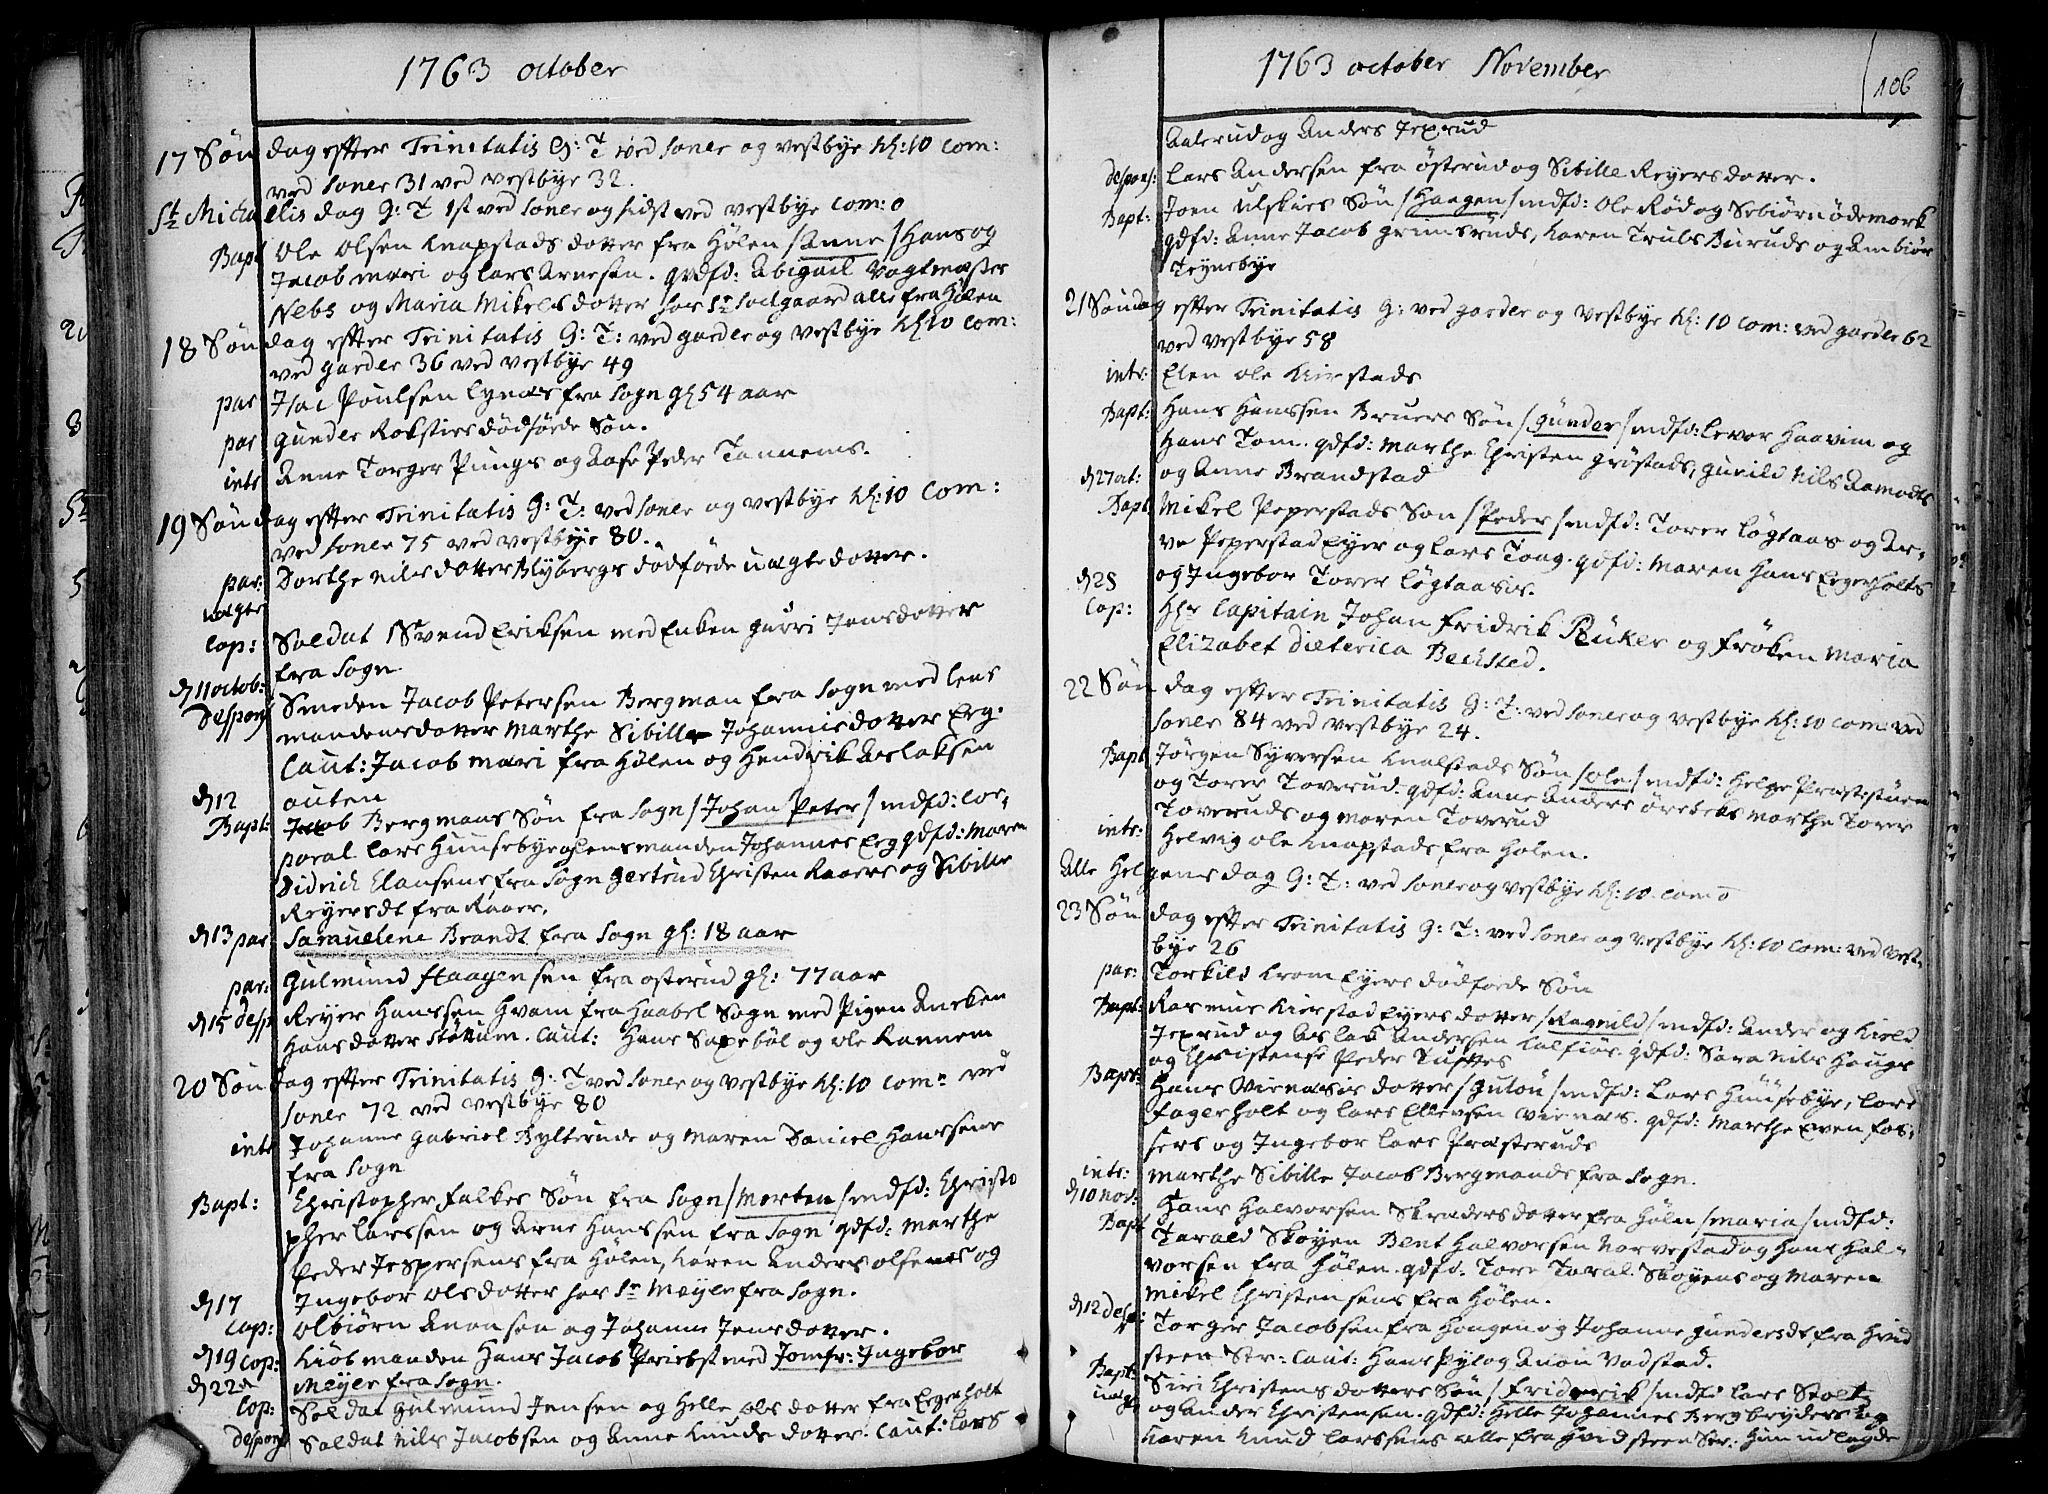 1763 october
17 Søn dag efter Trinitatis G: T ved Soner og vestbye Kl: 10 Com:
ved Soner 31 ved vestbye 32.
St Michaelis dag G: T 1st ved Soner og sidst ved vestbye Com: 0
Bapt Ole Olsen Knapstads dotter fra Hølen / Anne / Hans og
Jacob mari og Lars Arnesen. gvdfd: Abigael Vagtmæster
Nebs og Maria Mikelsdotter hos Sr Soelgaard alle fra Hølen
18 Søn dag efter Trinitatis G: T: ved garder og vestbye Kl 10 Com:
ved garder 36 ved vestbye 49
par Isac Poulsen Lynæs fra Sogn gl 54 aar
par Gunder Roksties dødførde Søn.
intr Anne Torger Pungs og Aase Peder Tannems.
19 Søn dag efter Trinitatis G: T: ved Soner og vestbye Kl: 10 Com:
ved Soner 75 ved vestbye 80.
par: Dorthe Nilsdotter Blybergs dødførde uægte dotter.
uægte
Cop: Soldat Svend Eriksen med Enken Gurri Jensdotter
fra Sogn
d 11 octob: Smeden Jacob Petersen Bergman fra Sogn med Lens
Despons mandens dotter Marthe Sibille Johannisdotter Erg.
Caut: Jacob mari fra Hølen og Hendrik Aslaksen
auten
d 12
Bapt: Jacob Bergmans Søn fra Sogn / Johan Peter / mdfd: Cor,
poral Lars Huusebye og Lensmanden Johannes Erg gdfd: Maren
Didrich Clausens fra Sogn Gertrud Christen Raaers og Sibille
Reyersdt fra Raaer.
d 13 par: Samuelene Brandt fra Sogn gl: 18 aar
par: Gulmund Haagensen fra osterud gl: 77 aar
d 15 desp Reyer Hanssen Hvam fra Haabel Sogn med Pigen Anchen
Hansdotter Støttum. Caut: Hans Saxebøl og Ole Rannem
20 Søn dag efter Trinitatis G: T ved Soner og vestbye Kl: 10 Com: ved
Soner 72 ved vestbye 80
intr Johanne Gabriel Bylterude og Maren Daniel Hanssens
fra Sogn
Bapt: Christopher Falkes Søn fra Sogn / Morten / mdfd: Christo
pher Larssen og Arne Hanssen fra Sogn gdfd: Marthe
Peder Jespersens fra Hølen, Karen Anders Olsens og
Ingebor Olsdotter hos Sr Meyer fra Sogn.
d 17
Cop: Olbiørn Anonsen og Johanne Jensdotter.
d 19 Cop: Kiøbmanden Hans Jacob Priebst med Jomfr: Ingebor
Meyer fra Sogn.
d 22
Cop: Soldat Gulmund Jensen og Helle Olsdotter fra Egerholt
despons Soldat Nils Jacobsen og Anne Knudsdotter. Caut: Lars
1763 october November 106
Aalerud og Anders Jexrud
despons: Lars Andersen fra østerud og Sibille Reyersdotter.
Bapt: Joen Ulskies Søn / Haagen / mdfd: Ole Rød og Sebiørn ødemork
gdfd: Anne Jacob Grimsruds, Karen Truls Buruds og Anbiør
Teynebye
21 Søndag efter Trinitatis G: ved garder og vestbye Kl: 10 Com: ved garder 62
ved vestbye 58
intr: Elen Ole Kierstads
Bapt: Hans Hanssen Bruers Søn / Gunder / mdfd: Levor Haavim og
Hans Tom. gdfd: Marthe Christen Grøstads, Gunild Nils Aamodts
og Anne Brandstad
d 27 oct:
Bapt Mikel Peperstads Søn / Peder / mdfd: Torer Løgtaas og Ar,
ve Peperstad Eyer og Lars Tong. gdfd: Maren Hans Egerholts
og Ingebor Torer Løgtaasis.
d 28
Cop: Hr Capitain Johan Fridrik Rüker og Frøken Maria
Elizabet Dieterica Bechsted.
22 Søn dag efter Trinitatis G: T: ved Soner og vestbye Kl: 10 Com: ved
Soner 84 ved vestbye 24.
Bapt Jørgen Syversen Knalstads Søn / Ole / mdfd: Helge Præstestuen
og Torer Toverud. gdfd: Anne Anders ørebeks Marthe Torer
Toveruds og Maren Toverud
intr: Helvig Ole Knapstads fra Hølen.
Alle Helgens dag G: T: ved Soner og vestbye Kl: 10. Com 0
23 Søn dag efter Trinitatis G: T: ved Soner og vestbye Kl: 10 Com: ved Vest,
bye 26
par: Torkild Krom Eyers dødførde Søn
Bapt: Rasmus Kierstad Eyers dotter / Ragnild / mdfd: Ander og Kield
Jexrud og Aslak Andersen Kalfiøs. gdfd: Sara Nils Haugs
og Christense Peder Tuftes
Bapt: Hans Viernæsis dotter / Gulou / mdfd: Lars Huusebye, Lars
Fagerholt og Lars Ellevsen Viernæs. gdfd: Marthe Even Fos,
sers og Ingebor Lars Præsteruds
intr: Marthe Sibille Jacob Bergmands fra Sogn.
d 10 nov:
Bapt Hans Halvorsen Skræders dotter fra Høln / Maria / mdfd:
Tarald Skøyen Bent Halvorsen Norvestad og Hans Hal,
vorsen fra Hølen. gdfd: Tore Taral Skøyens og Maren
Mikel Christensens fra Hølen.
d 12 desp: Torger Jacobsen fra Haugen og Johanne Gundersdt fra Hvid
steen Str: Caut: Hans Pyl og Anon Vadstad.
Bapt: Siri Christensdotters Søn / Friderick / mdfd Lars Stolt
uægte og Ander Christensen. gdfd: Helle Johannes Bergbryders og
Karen Knud Larssens alle fra Hvidsteen Str: Hun udlagde